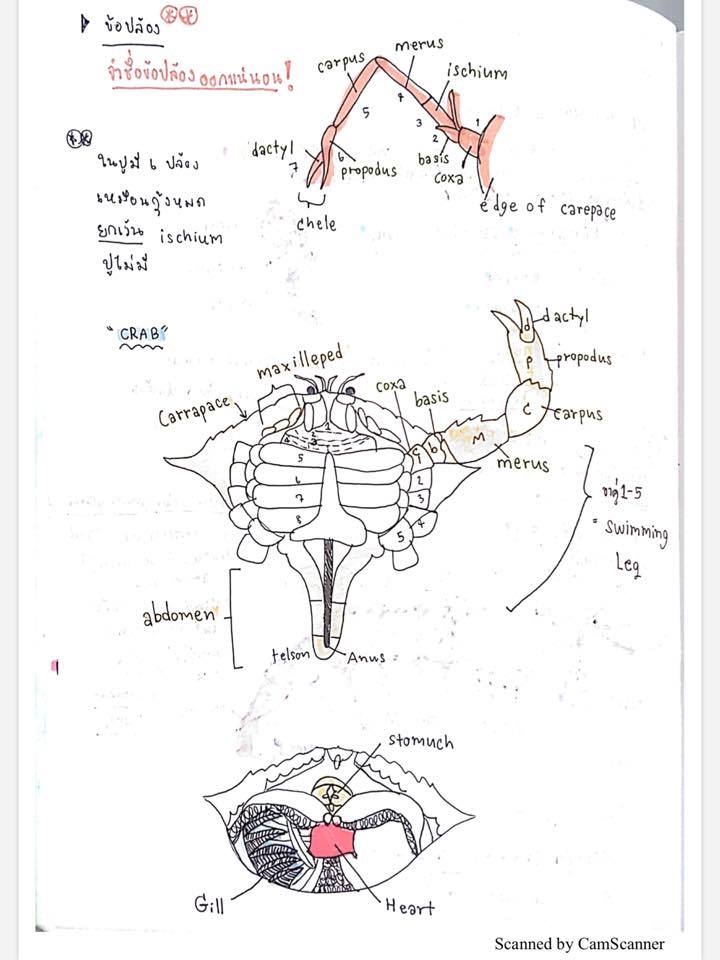 ข้อปล้อง
จำชื่อข้อปล้องออกแน่นอน!
merus
carpus
ischium
4
5
3
1
2
dactyl
7
6
propodus
basis
coxa
chele
edge of carepace
ในปูมี 6 ปล้อง
เหมือนกุ้งหมด
ยกเว้น ischium
ปูไม่มี
"CRAB"
dactyl
d
maxilleped
P
propodus
coxa
basis
Carrapace
C
carpus
M
merus
1
2
3
4
5
6
7
8
C
b
1
2
3
4
5
คู่ 1-5
= swimming
Leg
abdomen
telson
Anus
stomuch
Gill
Heart
Scanned by CamScanner